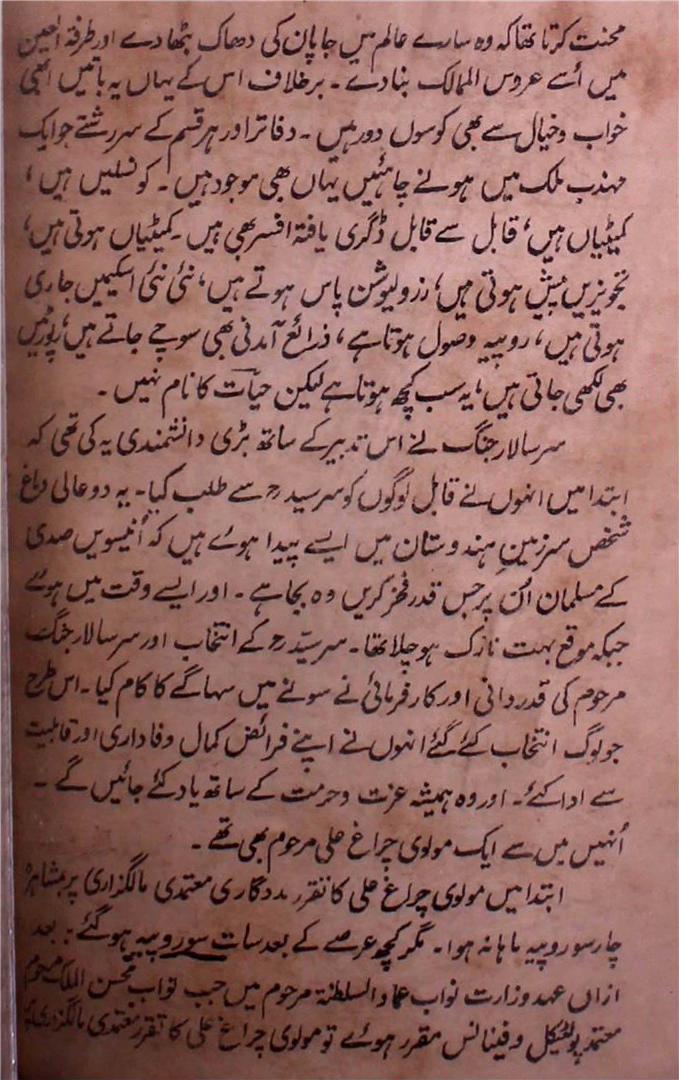 محنت کرتا تھا کہ وہ سارے عالم میں جاپان کی دھاک بٹھا دے اور طرفۃ العین
میں اُسے عروس الممالک بنا دے ۔ برخلاف اس کے یہاں یہ باتیں ابھی
خواب و خیال سے بھی کوسوں دور ہیں ۔ دفاتر اور ہر قسم کے سررشتے جو ایک
مہذب ملک میں ہونے چاہئیں یہاں بھی موجود ہیں ۔ کونسلیں ہیں ،
کمیٹیاں ہیں ، قابل سے قابل ڈگری یافتہ افسر بھی ہیں ۔ کمیٹیاں ہوتی ہیں ،
تجویزیں پیش ہوتی ہیں ، رزولیوشن پاس ہوتے ہیں ، نئی نئی اسکیمیں جاری
ہوتی ہیں ، روپیہ وصول ہوتا ہے ، ذرائع آمدنی بھی سوچے جاتے ہیں ، رپورٹیں
بھی لکھی جاتی ہیں ، یہ سب کچھ ہوتا ہے لیکن حیات کا نام نہیں ۔
سر سالار جنگ نے اس تدبیر کے ساتھ بڑی دانشمندی یہ کی تھی کہ
ابتدا میں انہوں نے قابل لوگوں کو سرسیدؒ سے طلب کیا ۔ یہ دو عالی دماغ
شخص سرزمینِ ہندوستان میں ایسے پیدا ہوے ہیں کہ اُنیسویں صدی
کے مسلمان اُن پر جس قدر فخر کریں وہ بجا ہے ۔ اور ایسے وقت میں ہوے
جبکہ موقع بہت نازک ہو چلا تھا ۔ سرسیّدؒ کے انتخاب اور سر سالار جنگ
مرحوم کی قدردانی اور کارفرمائی نے سونے میں سہاگے کا کام کیا ۔ اس طرح
جو لوگ انتخاب کئے گئے انہوں نے اپنے فرائض کمال وفاداری اور قابلیت
سے ادا کئے ۔ اور وہ ہمیشہ عزت و حرمت کے ساتھ یاد کئے جائیں گے ۔
اُنہیں میں سے ایک مولوی چراغ علی مرحوم بھی تھے ۔
ابتدا میں مولوی چراغ علی کا تقرر مددگاری معتمدی مالگزاری پر بمشاہرہ
چار سو روپیہ ماہانہ ہوا ۔ مگر کچھ عرصے کے بعد سات سو روپیہ ہو گئے ۔ بعد
ازاں عہد وزارت نواب عماد السلطنۃ مرحوم میں جب نواب محسن الملک مرحوم
معتمد پولٹیکل و فینانس مقرر ہوے تو مولوی چراغ علی کا تقرر معتمدی مالگزاری